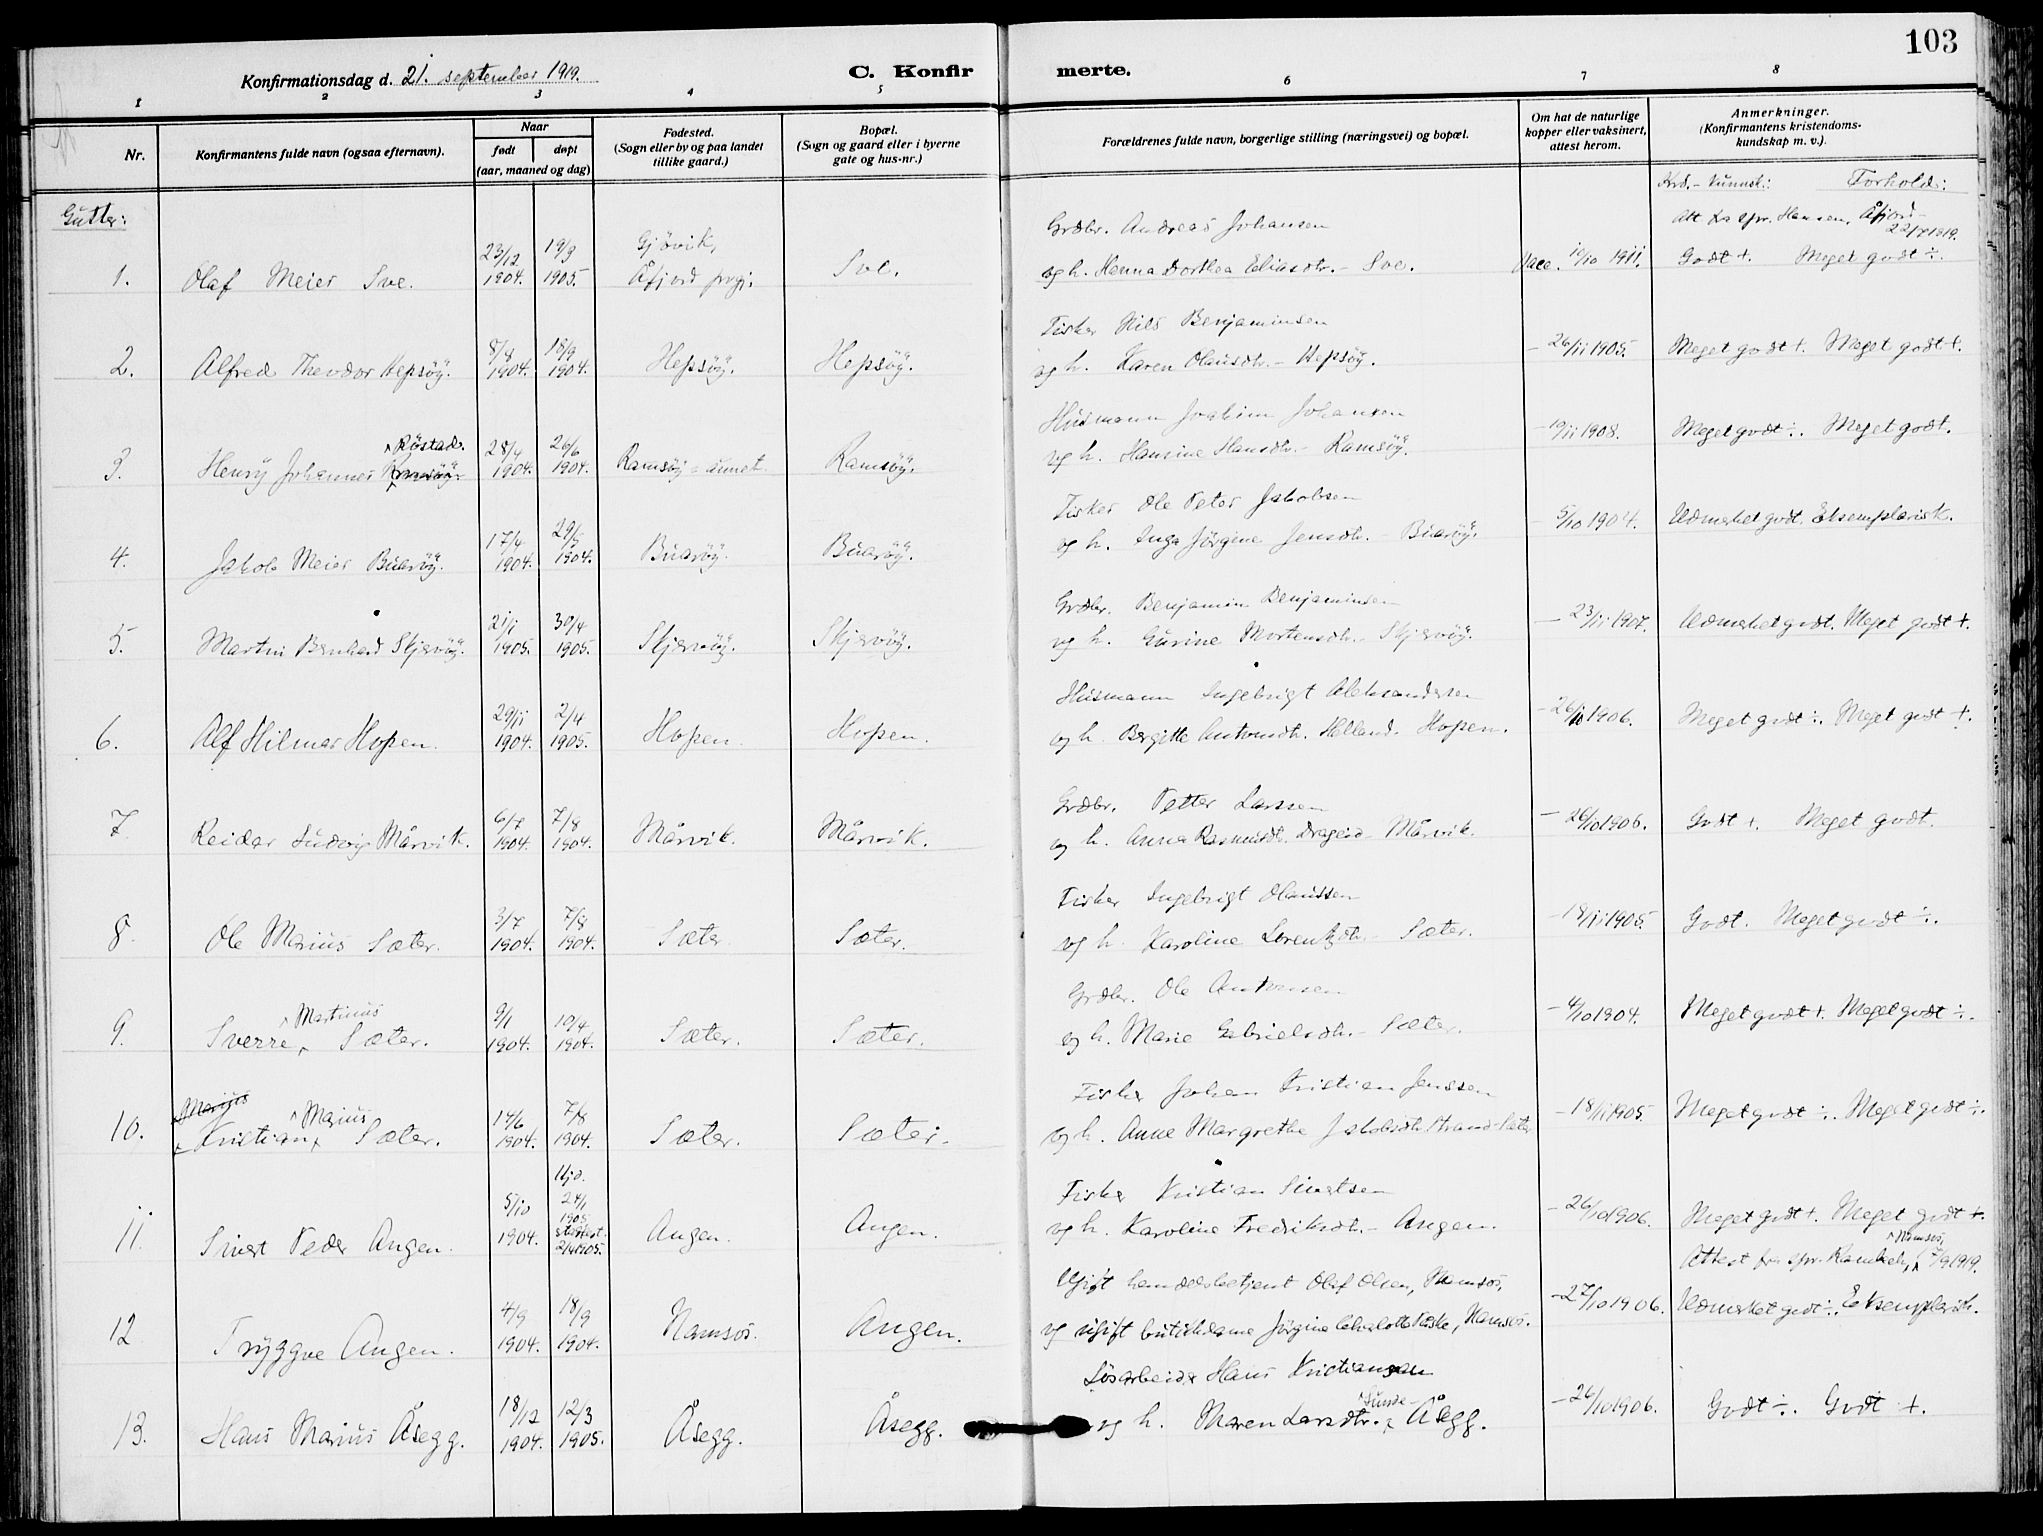 103
Konfirmationsdag d. 21. september 1919.
C. Konfirmerte.
1 2 3 4 5 6 7 8
Nr.
Konfirmantens fulde navn (ogsaa efternavn).
Naar
født døpt
(aar, maaned og dag)
Fødested.
(Sogn eller by og paa landet
tillike gaard.)
Bopæl.
(Sogn og gaard eller i byerne
gate og hus-nr.)
Forældrenes fulde navn, borgerlige stilling (næringsvei) og bopæl.
Om hat de naturlige
kopper eller vaksinert,
attest herom.
Anmerkninger.
(Konfirmantens kristendoms-
kundskap m. v.).
Krd.-kunnsk.: Forhold:
Gutter:
Att. fra spr. Hansen, Åfjord
22/7 1919.
23/12 19/3 Gjøvik, Grdbr. Andreas Johansen
1. Olaf Meier Sve. 1904. 1905. Åfjord prgj. Sve. og h. Hanna Dorthea Eliasdtr. - Sve. Vacc. 19/10 1911. Godt +. Meget godt ÷.
8/8 18/9 Fisker Nils Benjaminsen
2. Alfred Theodor Hepsöÿ. 1904. 1904. Hepsöÿ. Hepsöÿ. og h. Karen Olausdtr. - Hepsöÿ. - 26/11 1905. Meget godt +. Meget godt +.
Röstad. 28/4 26/6 Husmann Joakim Johansen
3. Henrÿ Johannes Ramsöÿ. 1904. 1904. Ramsöÿ - annet Ramsöÿ. og h. Hansine Hansdtr. - Ramsöÿ. - 19/11 1908. Meget godt ÷. Meget godt.
17/4 29/5 Fisker Ole Peter Jakobsen
4. Jakob Meier Buaröÿ. 1904. 1904. Buaröÿ. Buaröÿ. og h. Inga Jörgine Jensdtr. - Buaröÿ. - 5/10 1904. Udmerket godt. Eksemplarisk.
21/1 30/4 Grdbr. Benjamin Benjaminsen
5. Martin Bernhard Skjervöÿ. 1905. 1905. Skjervöÿ. Skjervöÿ. og h. Gurine Mortensdtr. - Skjervöÿ. - 23/11 1907. Udmerket godt. Meget godt +.
29/11 2/4 Husmann Ingebrigt Aleksandersen
6. Alf Hilmar Hopen. 1904. 1905. Hopen. Hopen. og h. Bergitte Antonsdtr. Helland. Hopen. - 26/10 1906. Meget godt ÷. Meget godt +.
6/7 7/8 Grdbr. Petter Larssen
7. Reidar Ludvig Mårvik. 1904. 1904. Mårvik. Mårvik. og h. Anna Rasmusdt. Drageid - Mårvik. - 26/10 1906. Godt +. Meget godt.
3/7 7/8 Fisker Ingebrigt Olaussen
8. Ole Marius Sæter. 1904. 1904. Sæter. Sæter. og h. Karoline Lorentzdtr. - Sæter. - 18/11 1905. Godt. Meget godt ÷.
Martinus 9/1 10/4 Grdbr. Ole Antonsen
9. Sverre Sæter. 1904. 1904. Sæter. Sæter. og h. Marie Gabrielsdtr. - Sæter. - 4/10 1904. Meget godt +. Meget godt ÷.
Marius Marius 14/6 7/8 Fisker Johan Kristian Jenssen
10. Kristian Sæter. 1904. 1904. Sæter. Sæter. og h. Anne Margrethe Jakobsdtr. Strand - Sæter - 18/11 1905. Meget godt ÷. Meget godt ÷.
5/10 Hjd. 24/1 1905. Fisker Kristian Sivertsen
11. Sivert Peder Angen. 1904. stadfest. 2/4 1905. Angen. Angen. og h. Karoline Fredriksdtr. - Angen. - 26/10 1906. Meget godt +. Meget godt +.
Attest fra spr. Namsos, 7/9 1919.
4/9 18/9 Ugift handelsbetjent Olaf Olsen, Namsos,
12 Trÿggve Angen. 1904. 1904. Namsos. Angen. og ugift butikdame Jörgine Charlotte, Namsos. - 27/10 1906. Udmerket godt ÷. Eksemplarisk.
18/12 12/3 Løsarbeider Hans Kristiansen
13. Hans Marius Åsegg. 1904. 1905. Åsegg. Åsegg. og h. Maren Larsdtr. Sunde Åsegg. - 26/10 1906. Godt ÷. Godt +.